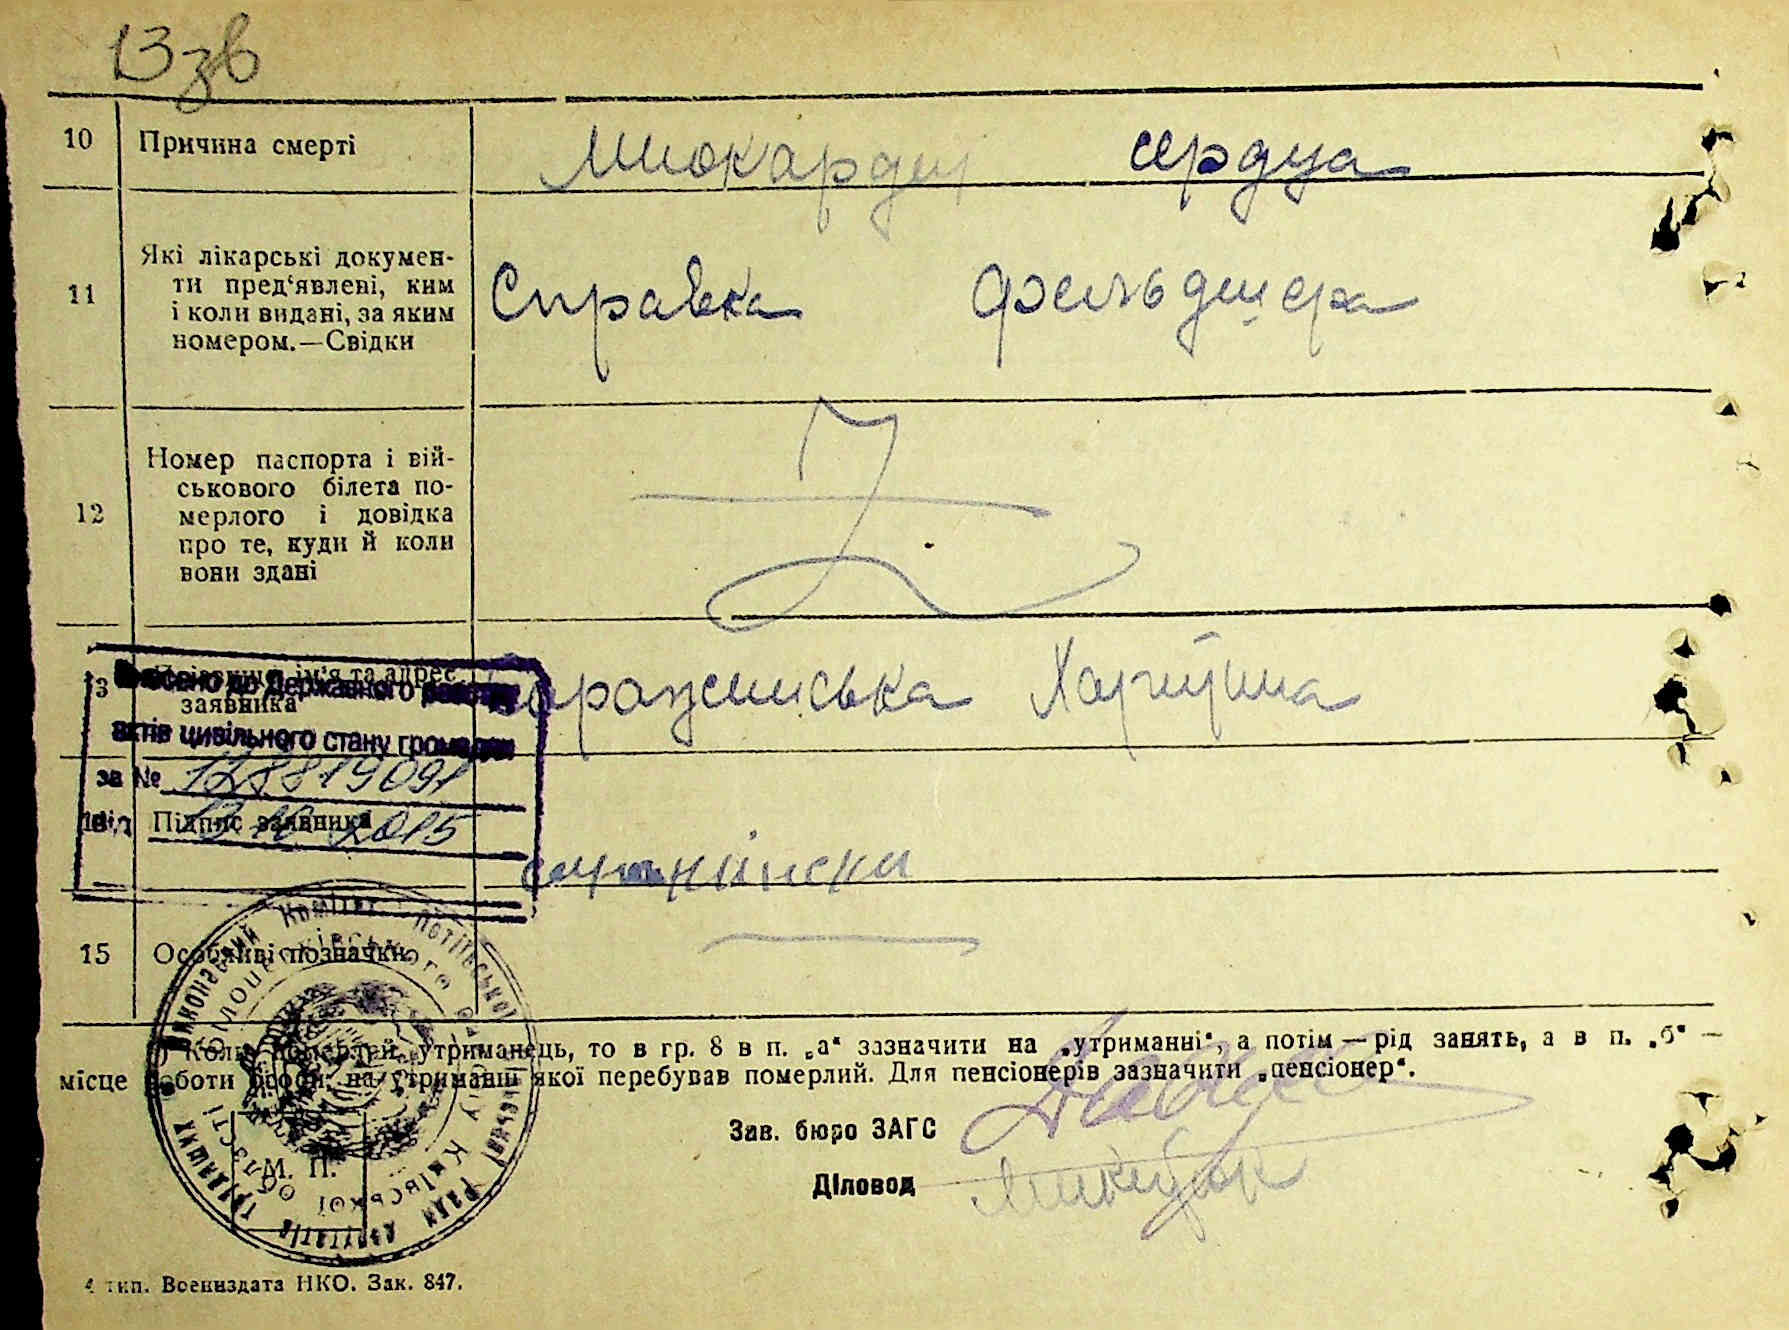 13зв
10 Причина смерті Миокардит сердца
11 Які лікарські докумен-
ти пред‘явлені, ким
і коли видані, за яким
номером.—Свідки
Справка фельдшера
12 Номер паспорта і вій-
ськового білета по-
мерлого і довідка
про те, куди й коли
вони здані
13 ім'я та адрес
заявника
Харитина
Внесено до Державного реєстру
актів цивільного стану громадян
за № 128819091
2015
Підпис заявника
15 Особливі позначки
Коли померлий утриманець, то в гр. 8 в п. „а“ зазначити на „утриманні“, а потім — рід занять, а в п. „б“ —
місце роботи особи, на утриманні якої перебував померлий. Для пенсіонерів зазначити „пенсіонер“.
Зав. бюро ЗАГС
Діловод
М. П.
Виконавчий Комітет Потіївської сільської Ради депутатів трудящих
Білоцерківського району Київської області
4 тип. Воениздата НКО. Зак. 847.